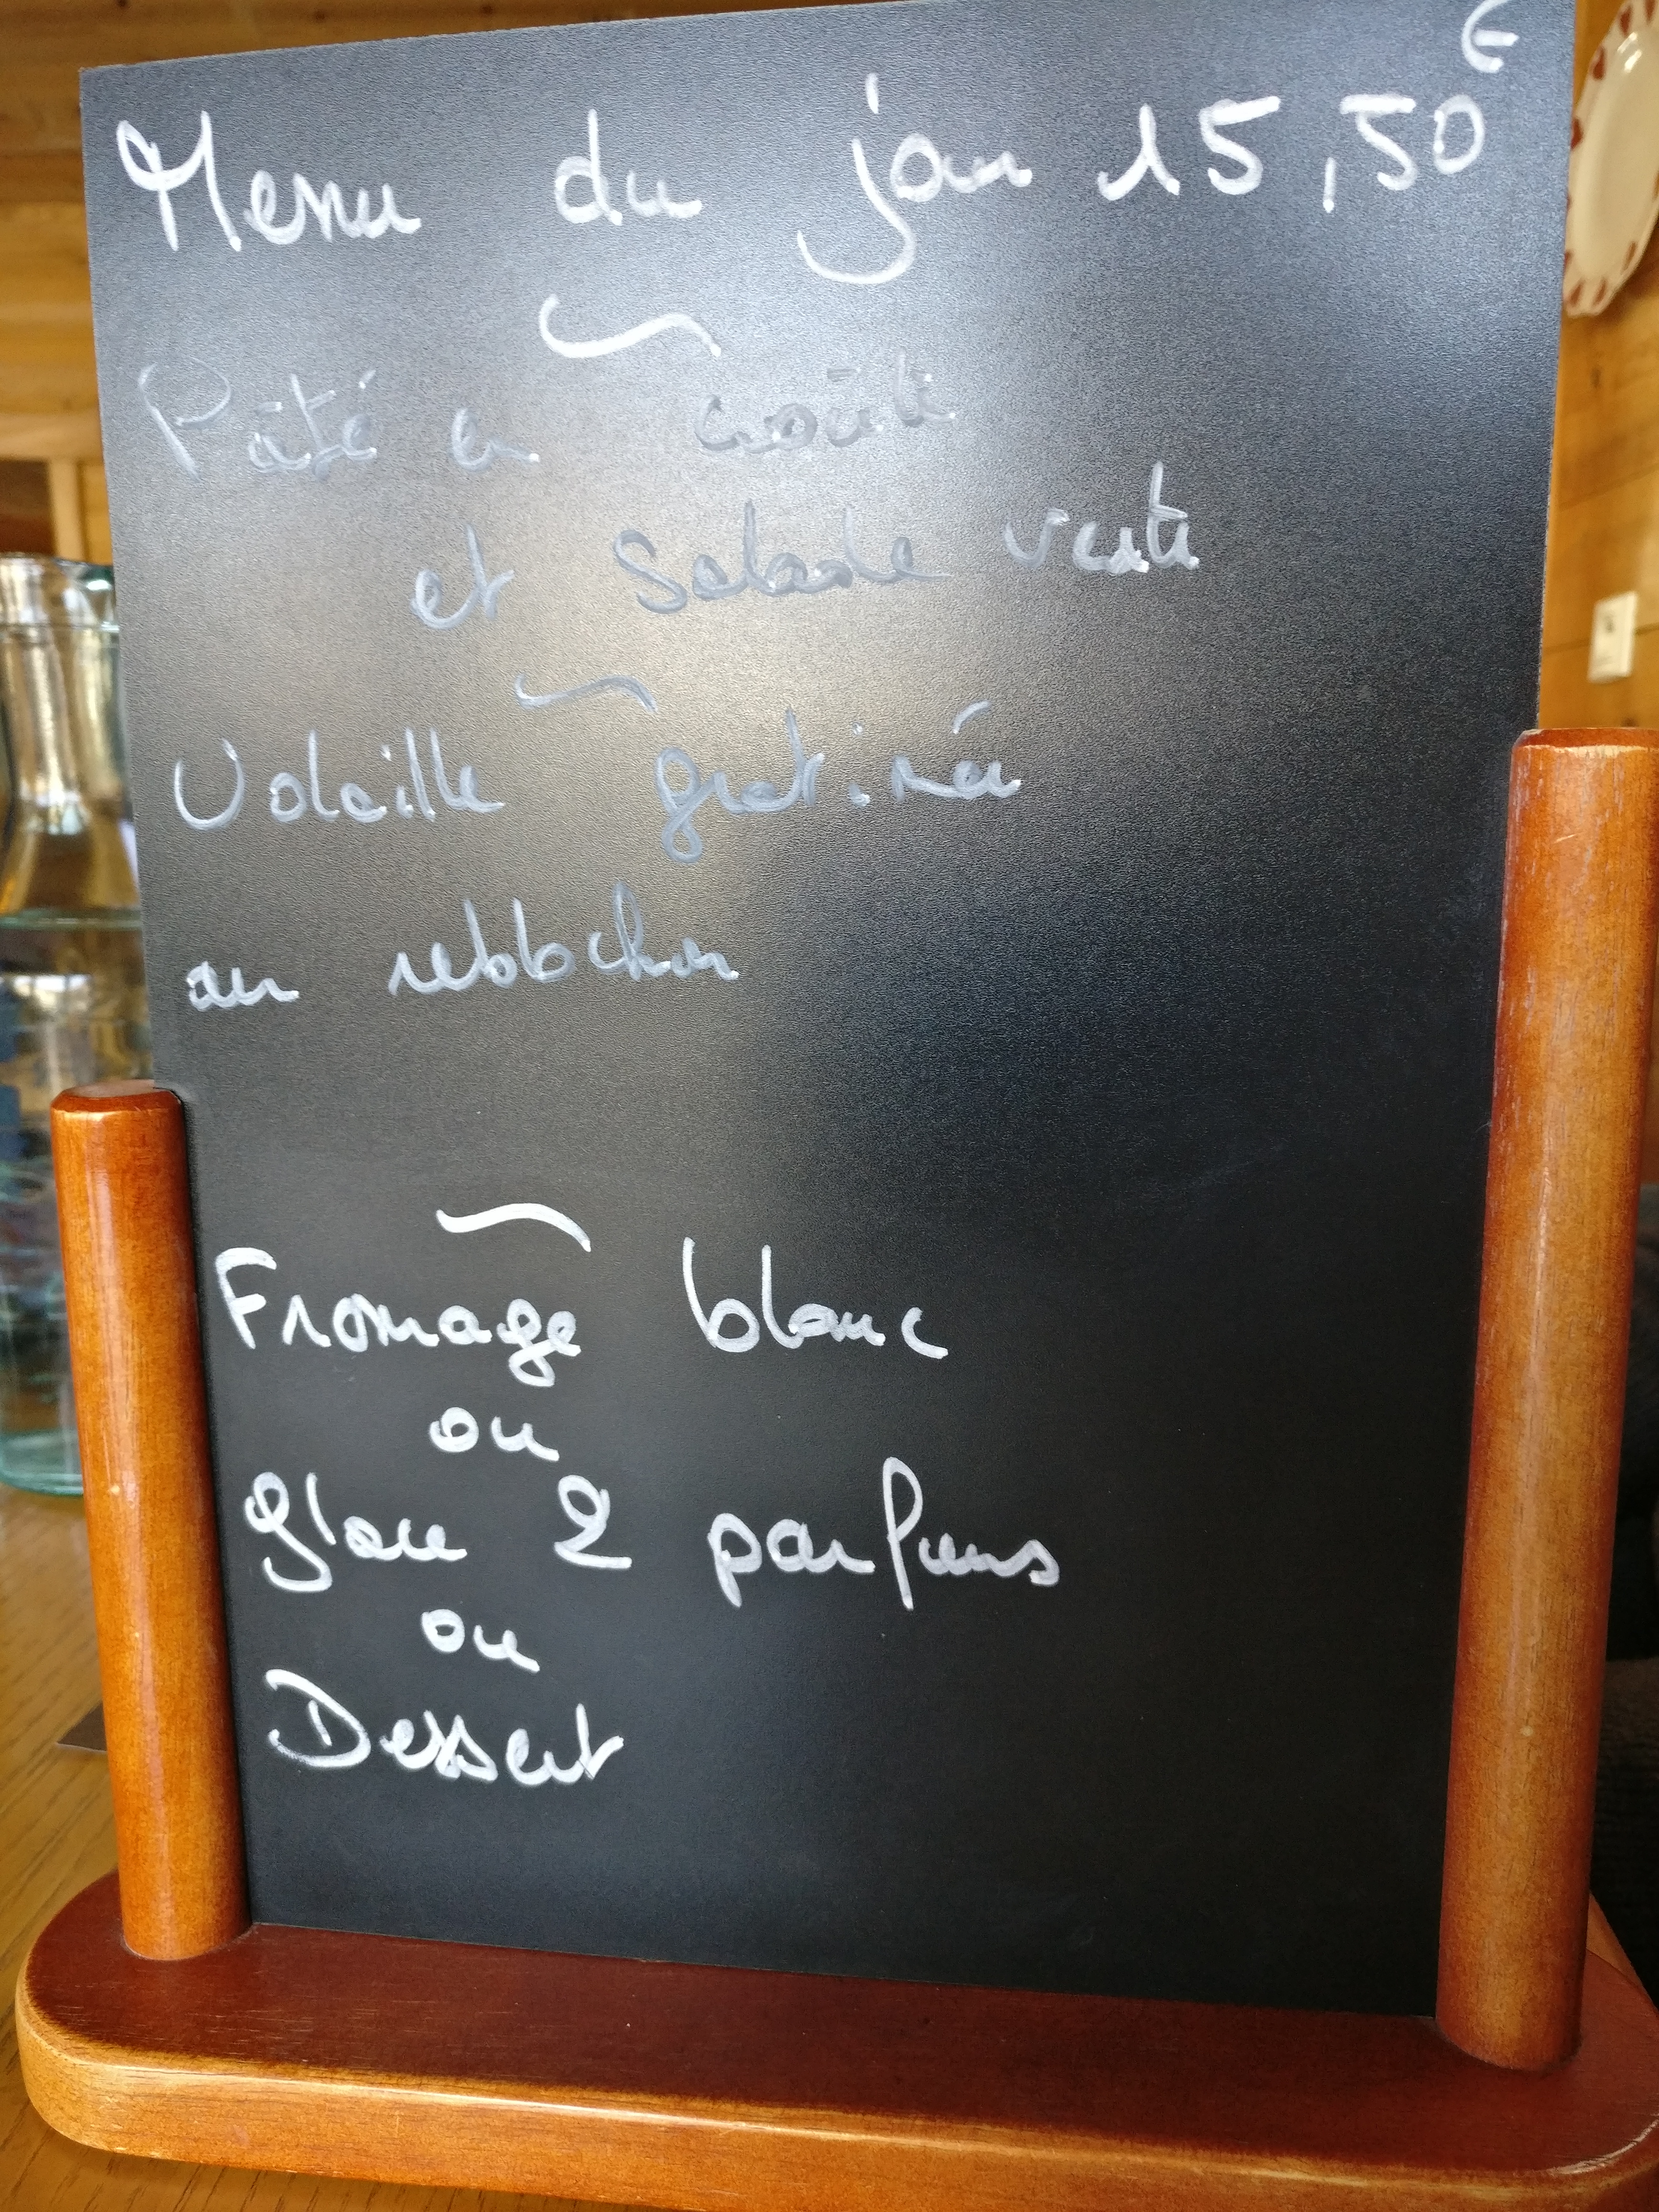 Menu du jour 15,50€
Pâté en croûte
et Salade verte
Volaille gratinée
au reblochon
Fromage blanc
ou
glace 2 parfums
ou
Dessert